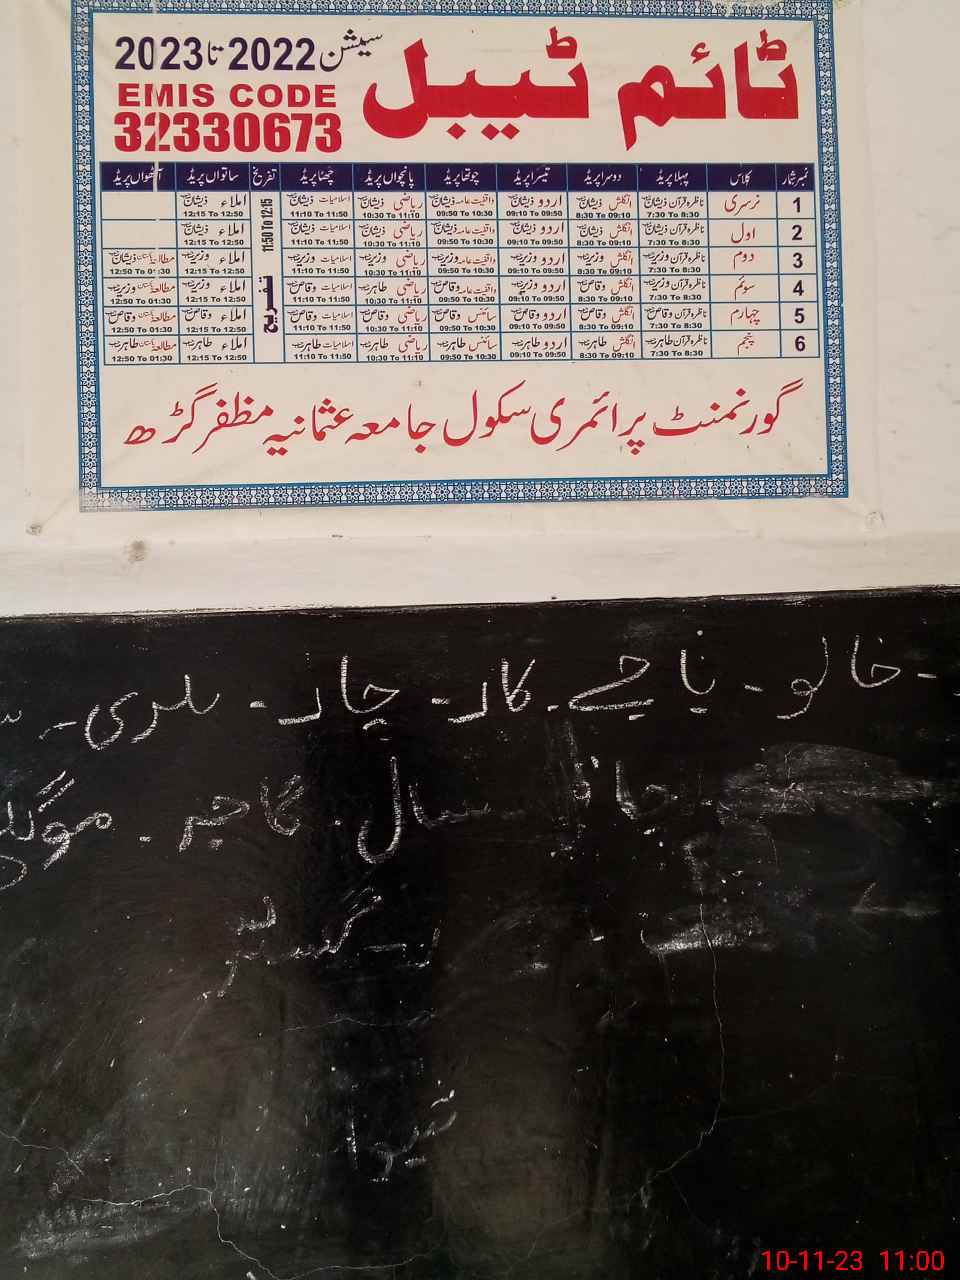 ٹائم ٹیبل
سیشن 2022 تا 2023
EMIS CODE
32330673
نمبر شمار کلاس پہلا پریڈ دوسرا پریڈ تیسرا پریڈ چوتھا پریڈ پانچواں پریڈ چھٹا پریڈ تفریح ساتواں پریڈ آٹھواں پریڈ
1 نرسری ناظرہ قرآن ذیشان انگلش ذیشان اردو ذیشان واقفیت عامہ ذیشان ریاضی ذیشان اسلامیات ذیشان املاء ذیشان
7:30 To 8:30 8:30 To 09:10 09:10 To 09:50 09:50 To 10:30 10:30 To 11:10 11:10 To 11:50 11:50 To 12:15 12:15 To 12:50
2 اول ناظرہ قرآن ذیشان انگلش ذیشان اردو ذیشان واقفیت عامہ ذیشان ریاضی ذیشان اسلامیات ذیشان املاء ذیشان
7:30 To 8:30 8:30 To 09:10 09:10 To 09:50 09:50 To 10:30 10:30 To 11:10 11:10 To 11:50 12:15 To 12:50
3 دوم ناظرہ قرآن وزیر انگلش وزیر اردو وزیر واقفیت عامہ وزیر ریاضی وزیر اسلامیات وزیر تفریح املاء وزیر مطالعہ پاکستان ذیشان
7:30 To 8:30 8:30 To 09:10 09:10 To 09:50 09:50 To 10:30 10:30 To 11:10 11:10 To 11:50 12:15 To 12:50 12:50 To 01:30
4 سوئم ناظرہ قرآن وزیر انگلش وقاص اردو وزیر واقفیت عامہ وقاص ریاضی طاہر اسلامیات وقاص املاء وزیر مطالعہ پاکستان وزیر
7:30 To 8:30 8:30 To 09:10 09:10 To 09:50 09:50 To 10:30 10:30 To 11:10 11:10 To 11:50 12:15 To 12:50 12:50 To 01:30
5 چہارم ناظرہ قرآن وقاص انگلش وقاص اردو وقاص سائنس وقاص ریاضی وقاص اسلامیات وقاص املاء وقاص مطالعہ پاکستان وقاص
7:30 To 8:30 8:30 To 09:10 09:10 To 09:50 09:50 To 10:30 10:30 To 11:10 11:10 To 11:50 12:15 To 12:50 12:50 To 01:30
6 پنجم ناظرہ قرآن طاہر انگلش طاہر اردو طاہر سائنس طاہر ریاضی طاہر اسلامیات طاہر املاء طاہر مطالعہ پاکستان طاہر
7:30 To 8:30 8:30 To 09:10 09:10 To 09:50 09:50 To 10:30 10:30 To 11:10 11:10 To 11:50 12:15 To 12:50 12:50 To 01:30
گورنمنٹ پرائمری سکول جامعہ عثمانیہ مظفر گڑھ
- خالو - با جے - کار - چار -
سال - گاجر -
10-11-23 11:00